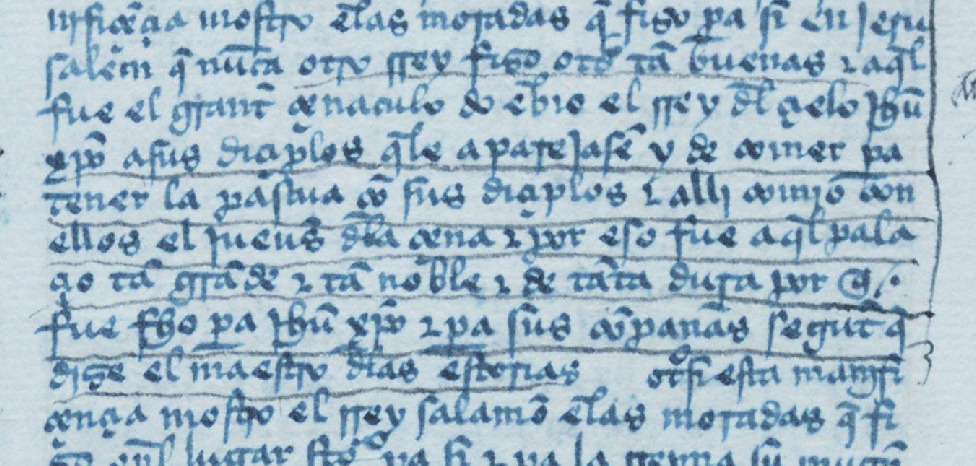 nifiçençia mostro elas moradas q̃ fizo pa si en jeru
salem q̃ nũca otro rrey fizo otᵒ tã buenas ⁊ aql̃
fue el grant çenaculo do ebio el rrey dl̃ çielo jhũ
xp̃o a sus diçiplos q̃ le aparejasẽ y de comer pa
tener la pascua cõ sus diçiplos ⁊ alli comio con
ellos el jueues dla çena ⁊ por eso fue aql̃ pala
çio tã grãde ⁊ tã noble ⁊ de tãta dura por q̃
fue fho pa jhũ xp̃o ⁊ pa sus cõpanas segunt q̃
dize el maestro dlas estorias otᵒsi esta magnifi
çençia mostro el rrey salamõ elas moradas q̃ fi
lugar pa si ⁊ pa la rreyna